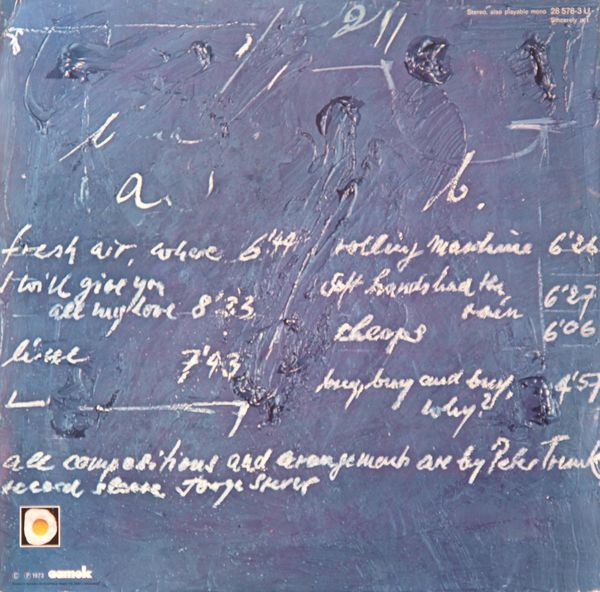 Stereo, also playable mono 28 578-3 U
Sincerely p.t.
a.
fresh air, where 6'44
I will give you
all my love 8'33
line 7'43
b.
rolling maschine 6'26
soft hands and the
rain 6'27
cheaps 6'06
buy, buy and buy,
why? 4'57
all compositions and arrangements are by Peter Trunk
record sleeve
© ℗ 1973